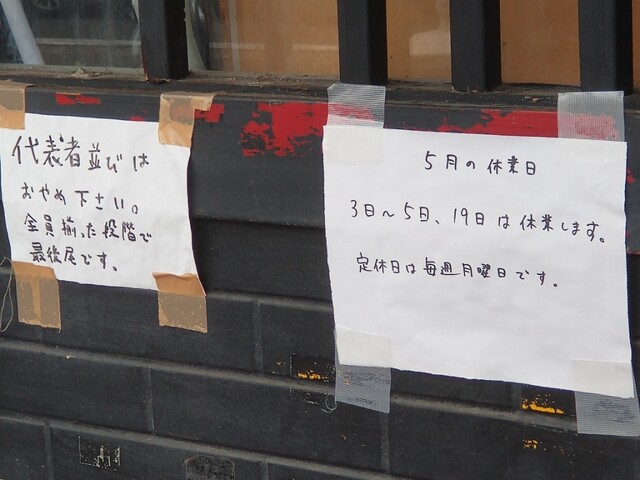 代表者並びは
おやめ下さい。
全員揃った段階で
最後尾です。
5月の休業日
3日～5日、19日は休業します。
定休日は毎週月曜日です。